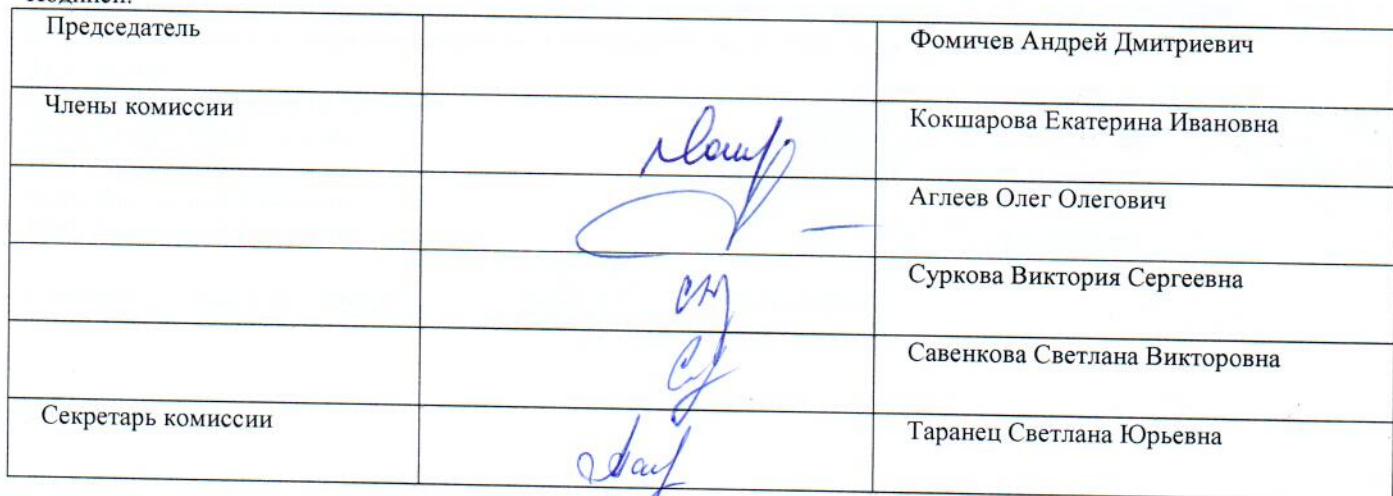 Председатель Фомичев Андрей Дмитриевич
Члены комиссии Кокшарова Екатерина Ивановна
Аглеев Олег Олегович
Суркова Виктория Сергеевна
Савенкова Светлана Викторовна
Секретарь комиссии Таранец Светлана Юрьевна